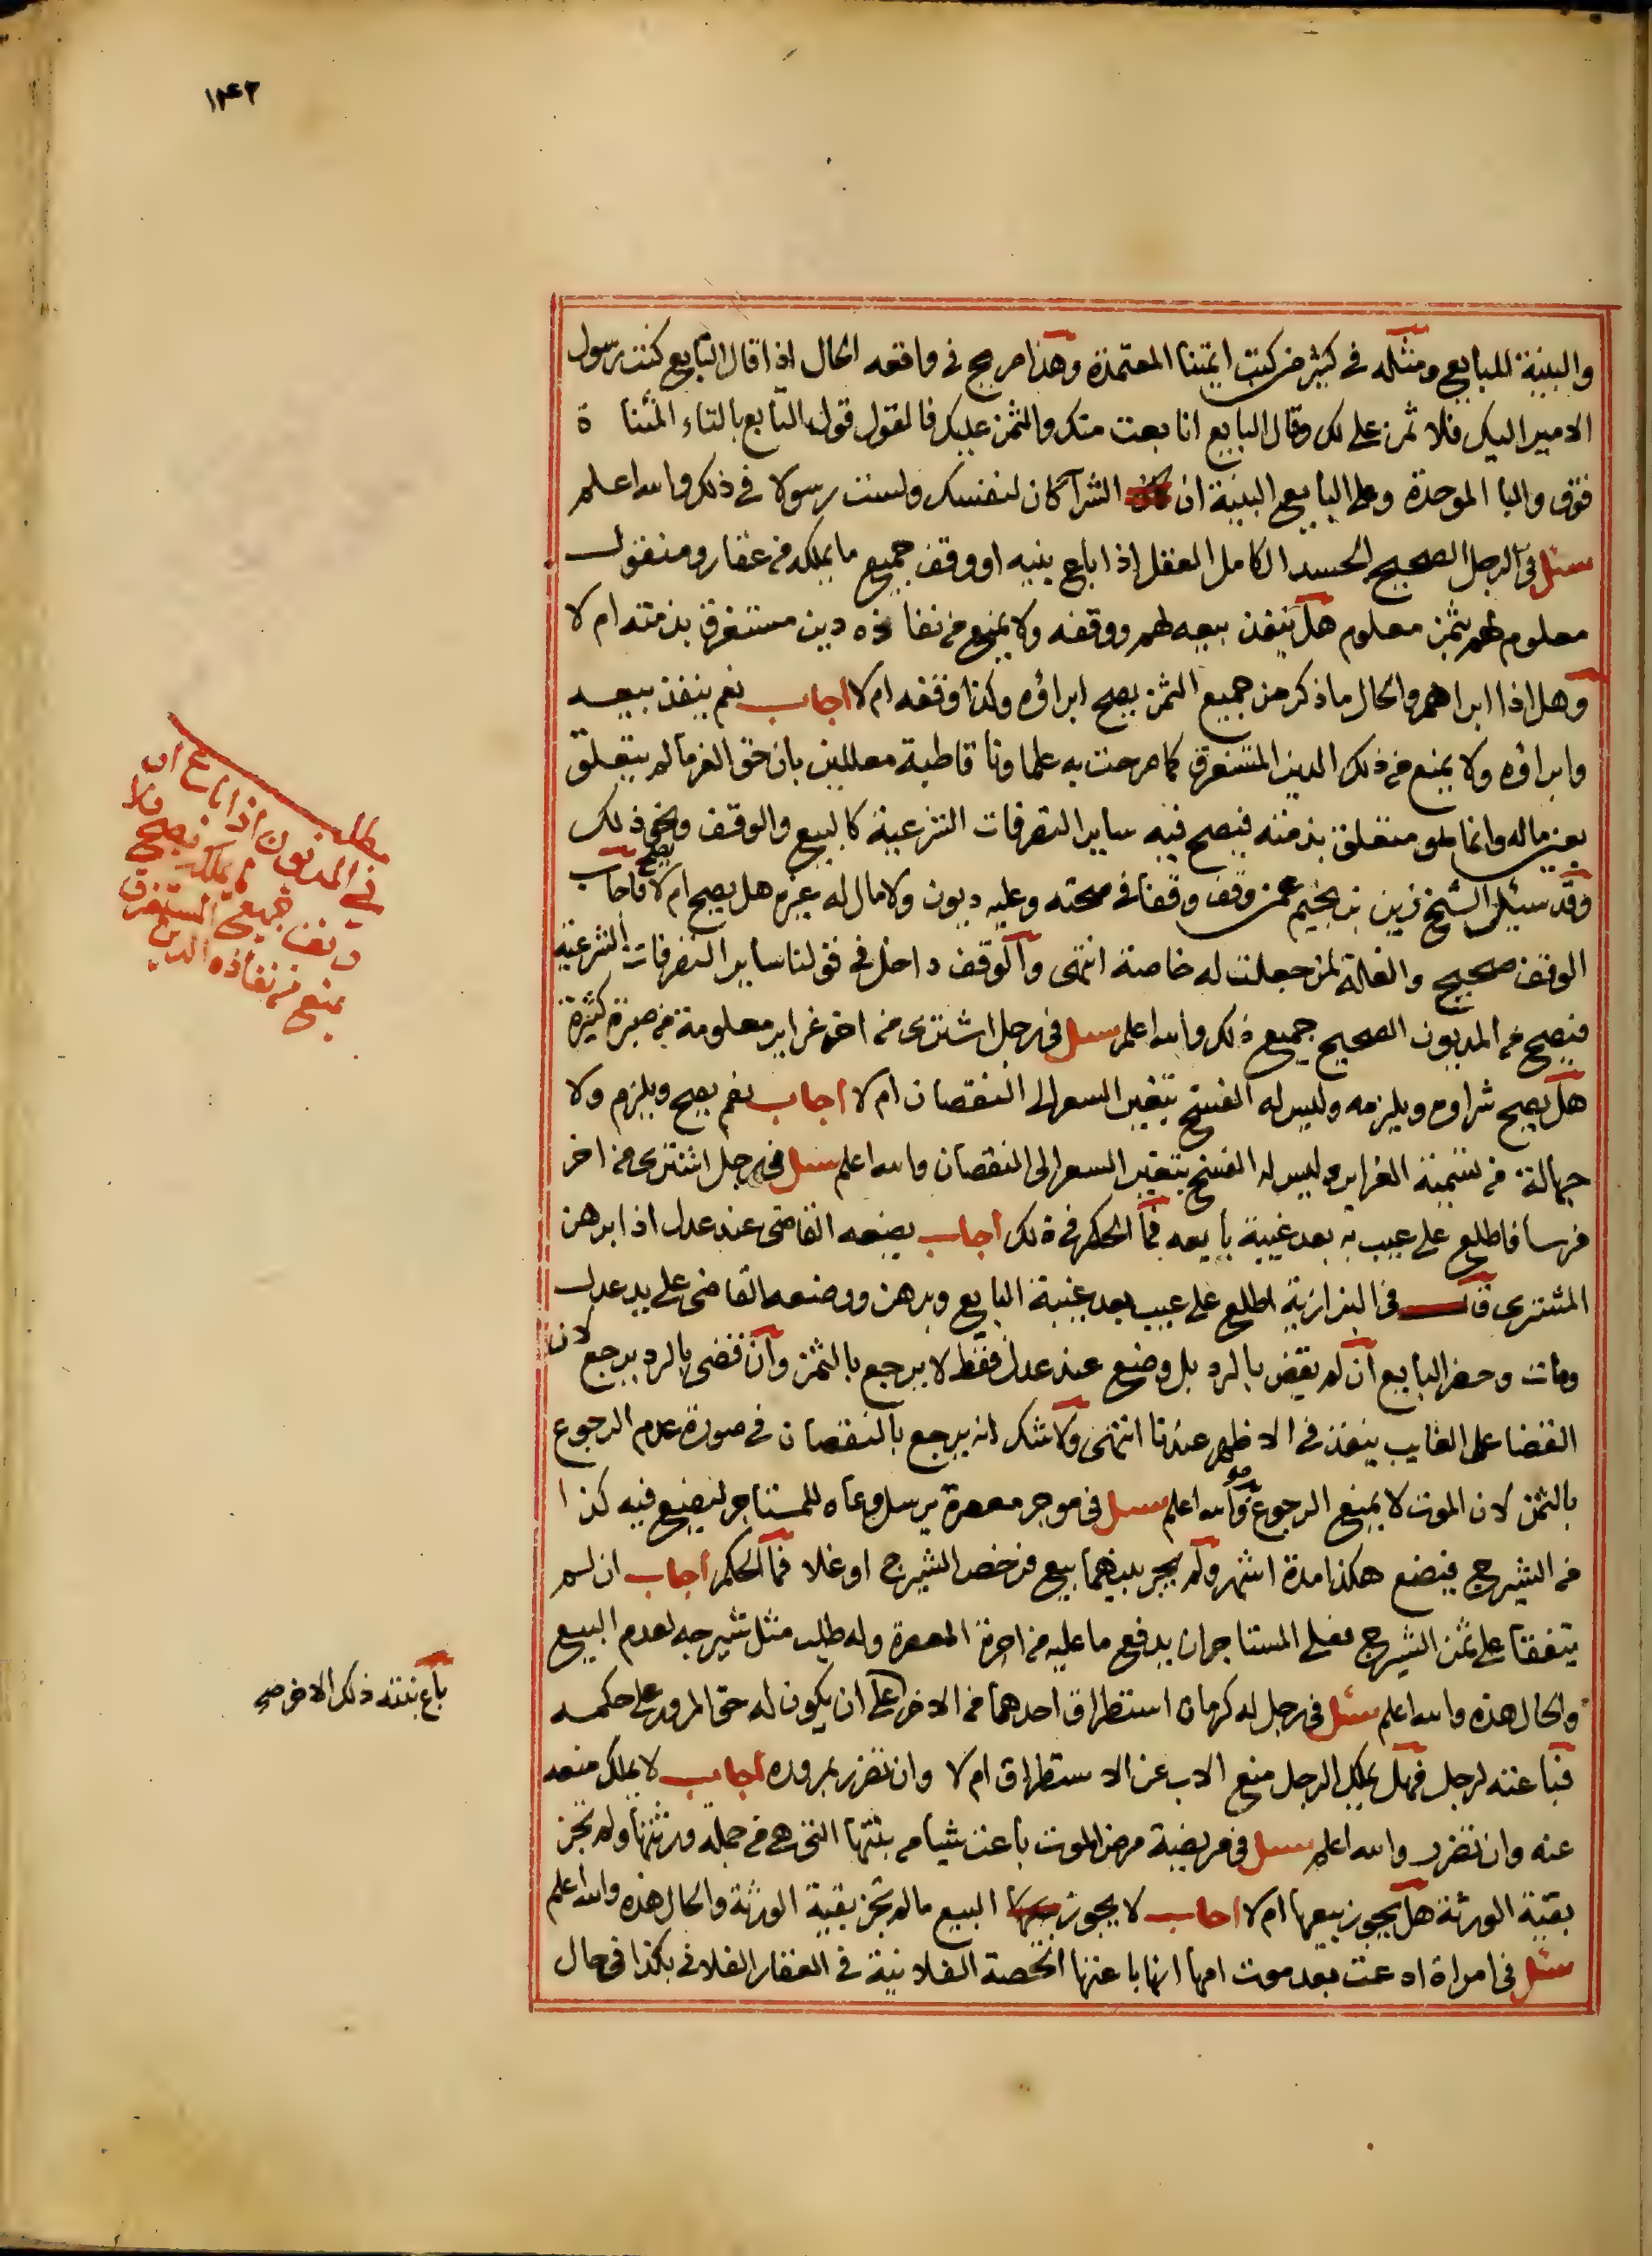 ١٤٢
والبينة للبايع ومثله في كثير من كتب ايمتنا المعتمدة وهذا مرجح في واقعه الحال اذا قال التابع كنت رسول
الامير اليك فلا ثمن علي لك وقال البايع انا بعت منك والثمن عليك فالقول قول التابع بالتاء المثناة
فوق والبا الموحدة وعلى البايع البينة ان الشرآ كان لنفسك ولست رسولا في ذلك والله اعلم
سئل في الرجل الصحيح الجسد الكامل العقل اذا باع بنيه او وقف جميع ما يملكه من عقار ومنقول
معلوم لهم بثمن معلوم هل ينفذ بيعه لهم ووقفه ولا يمنع من نفاذه دين مستغرق بذمته ام لا
وهل اذا ابراهم والحال ما ذكر من جميع الثمن يصح ابراؤه وكذا وقفه ام لا اجاب نعم ينفذ بيعه
وابراؤه ولا يمنع من ذلك الدين المستغرق كما صرحت به علماونا قاطبة معللين بان حق الغرما لم يتعلق
بعين ماله وانما هو متعلق بذمته فيصح فيه ساير التصرفات الشرعية كالبيع والوقف ونحو ذلك
وقد سئل الشيخ زين بن نجيم عمن وقف وقفا في صحته وعليه ديون ولا مال له غيره هل يصح ام لا فاجاب
الوقف صحيح والغلة لمن جعلت له خاصة انتهى والوقف داخل في قولنا ساير التصرفات الشرعية
فيصح من المديون الصحيح جميع ذلك والله اعلم سئل في رجل اشترى من اخر غراير معلومة من صبرة كثيرة
هل يصح شراوه ويلزمه وليس له الفسخ بتغير السعر الى النقصان ام لا اجاب نعم يصح ويلزم ولا
جهالة من تسمية الغراير وليس له الفسخ بتغير السعر الى النقصان والله اعلم سئل في رجل اشترى من اخر
فرسا فاطلع على عيب به بعد غيبة بايعه فما الحكم في ذلك اجاب يضعه القاضي عند عدل اذا برهن
المشتري قال في البزازية اطلع على عيب بعد غيبة البايع وبرهن ووضعه القاضي على يد عدل
ومات وحضر البايع ان لم يقض بالرد بل وضع عند عدل فقط لا يرجع بالثمن وان قضى بالرد يرجع لان
القضا على الغايب ينفذ في الاظهر عندنا انتهى ولا شك انه يرجع بالنقصان في صورة عدم الرجوع
بالثمن لان الموت لا يمنع الرجوع به والله اعلم سئل في موجر معصرة يرسل وعاه للمستاجر ليضع فيه كذا
من الشيرج فيضع هكذا مدة اشهر ولم يجر بينهما بيع فرخص الشيرج او غلا فما الحكم اجاب ان لم
يتفقا على ثمن الشيرج فعلى المستاجر ان يدفع ما عليه من اجرة المعصرة وله طلب مثل شيرجه لعدم البيع
والحال هذه والله اعلم سئل في رجل له كرمان استطراق احدهما من الاخر على ان يكون له حق المرور على حكمه
فباعته لرجل فهل يملك الرجل منع الاب عن الاستطراق ام لا وان تضرر بمروره اجاب لا يملك منعه
عنه وان تضرر والله اعلم سئل في مريضة مرض الموت باعت شيا من بنتها التي هي من جملة ورثتها ولم تجز
بقية الورثة هل يجوز بيعها ام لا اجاب لا يجوز البيع ما لم تجز بقية الورثة والحال هذه والله اعلم
سئل في امراة ادعت بعد موت امها انها باعتها الحصة الفلانية في العقار الفلاني بكذا في حال
مطلب
في المديون اذا باع او
وقف جميع ما يملك يصح ولا
يمنع من نفاذه الدين المستغرق
باع بنته ذلك الاخر صح